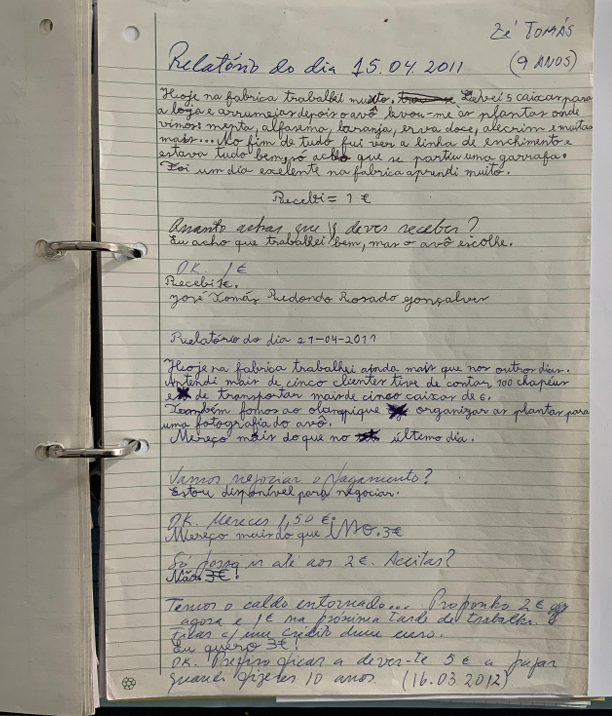 Zé TOMÁS
(9 ANOS)
Relatório do dia 15.04.2011
Hoje na fabrica trabalhei muito. Levei 5 caixas para
a loja e arrumei as depois o avô levou-me às plantas onde
vimos: menta, alfasema, laranja, erva doce, alecrim e muitas
mais... No fim de tudo fui ver a linha de enchimento e
estava tudo bem, só acho que se partiu uma garrafa.
Foi um dia exelente na fabrica aprendi muito.
Recebi = 1 €
Quanto achas que deves receber?
Eu acho que trabalhei bem, mas o avô escolhe.
OK. 1€
Recebi 1€.
José Tomás Redondo Rosado gonçalves
Relatório do dia 21-04-2011
Hoje na fabrica trabalhei ainda mais que nos outros dias.
Antendi mais de cinco clientes tive de contar 100 chapéus
e de transportar mais de cinco caixas de 6.
Também fomos ao organizar as plantas para
uma fotografia do avô.
Mereço mais do que no último dia.
Vamos negociar o pagamento?
Estou disponível para negociar.
OK. Mereces 1,50 €.
Mereço mais do que isso. 3€
Só posso ir até aos 2€. Aceitas?
Não 3€!
Temos o caldo entornado... Proponho 2€
agora e 1€ na próxima tarde de trabalho.
ficas c/ um crédito dum euro.
Eu quero 3€!
OK. Prefiro ficar a dever-te 5€ a pagar
quando fizeres 10 anos. (16.03.2012)